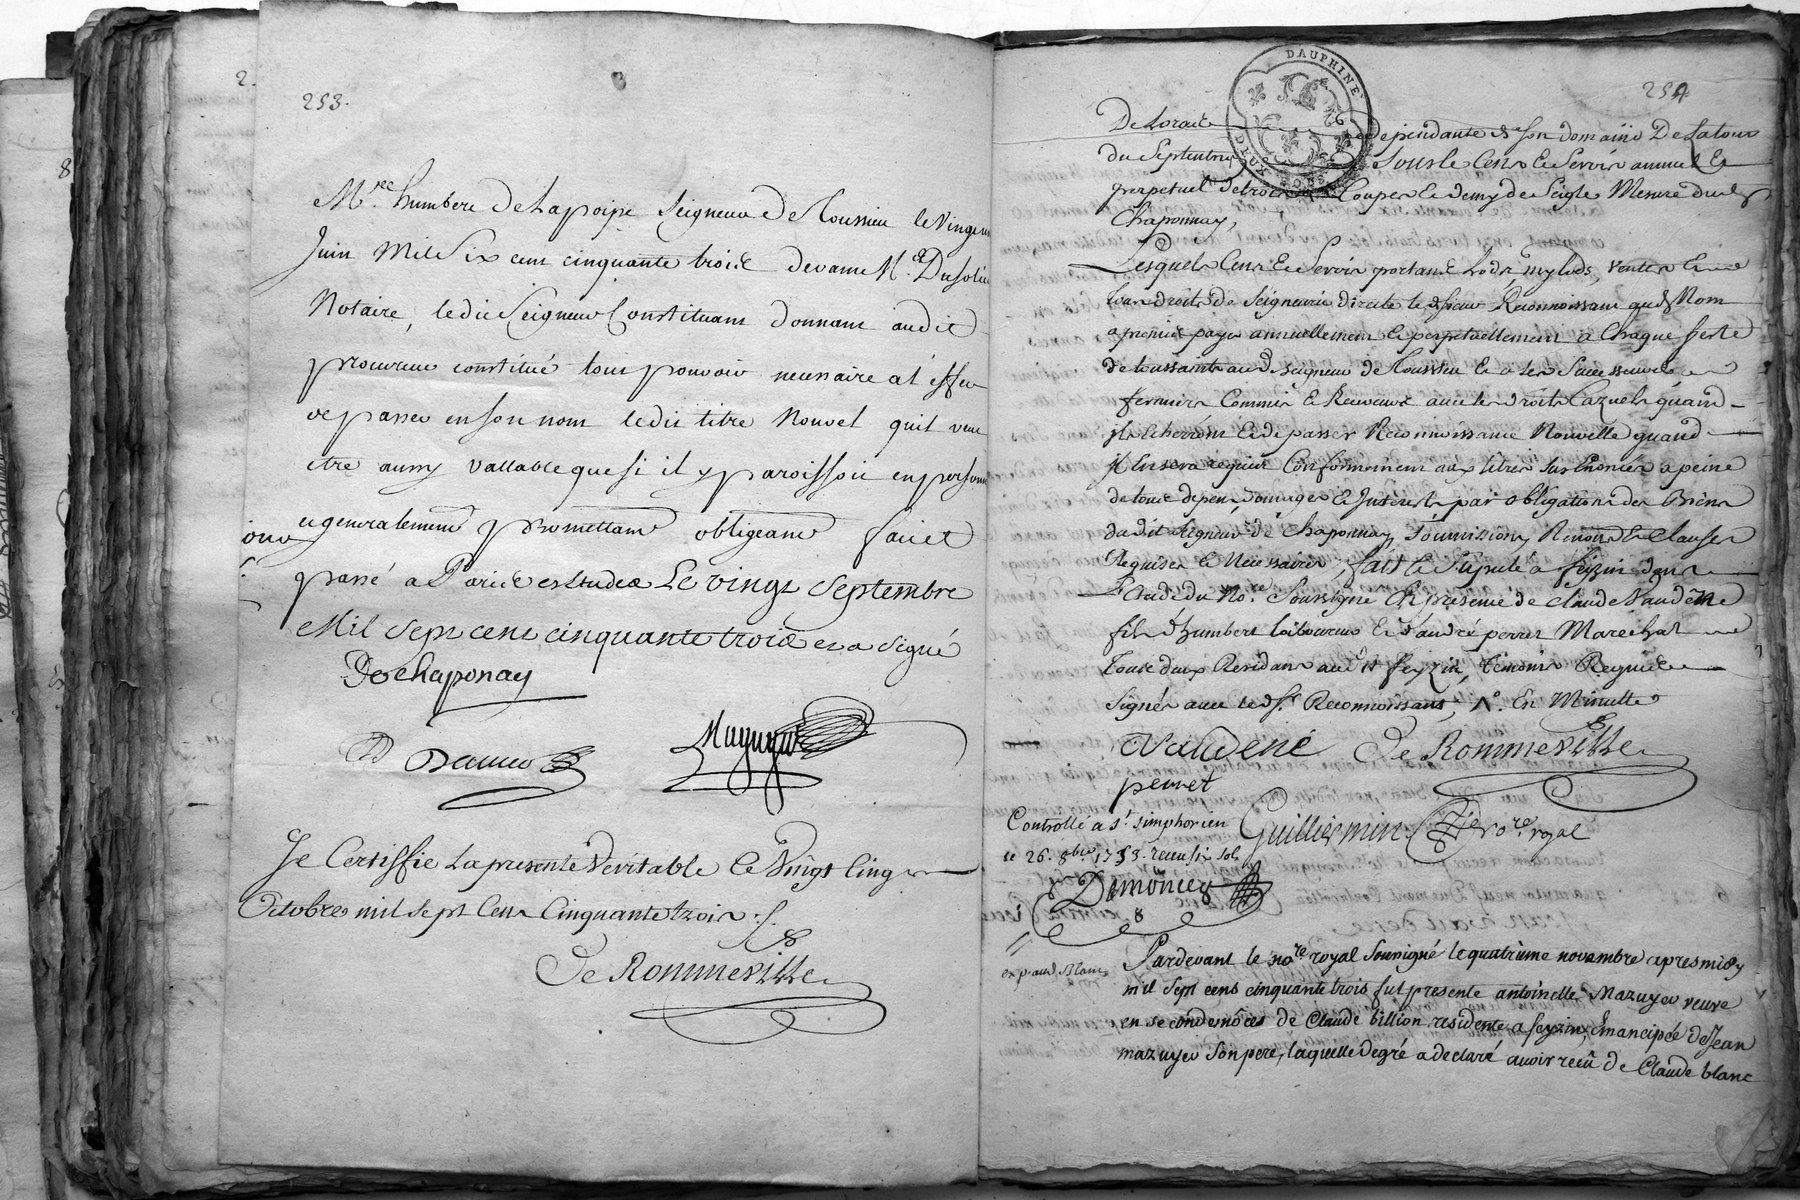 253.
Mre. humbert De Lapoipe Seigneur De Roussieu le Vingt un
Juin Mil Six cent cinquante trois devant Me Dusoleil
Notaire, ledit Seigneur Constituant donnant audit
procureur constitué tout pouvoir necessaire a l'effet
de passer en son nom ledit titre Nouvel quil veut
etre aussy vallable que si il y paroissoit en personne
et generalement promettant obligeant fait et
passé a Paris es Etudes Le vingt Septembre
Mil Sept cent cinquante trois et a Signé
De Chaponay
Je Certiffie La presente Veritable Ce Vingt Cinq
Octobre mil Sept Cens Cinquante trois ./.
De Rommeville
DAUPHINE
DEUX SOLS
254
De Lorait dependante de son domaine De Latour
du Septentrion Sous le Cens Et Servis annuel Et
perpetuel de trois Coupes Et demy de Seigle Mesure dud
Chaponnay,
Lesquels Cens Et Servis portant Lods, mylods, ventes Et
tous droits de Seigneurie directe le dt Sieur Reconnoissant aud Nom
a promis payer annuellement Et perpetuellement a Chaque feste
de toussaints aud. Seigneur de Roussieu Et a les Successeurs
fermiers Commis Et Receveurs avec les droits Cazuels quand
ils Echerront Et de passer Reconnoissance Nouvelle quand
il En sera requis Conformement aux titres Sus Enoncés a peine
de tous depens, domages Et Interests par obligations des Biens
dudit Seigneur de Chaponnay Soumissions Renon.s Et Clauses
Requises Et Necessaires, fait Et Stipulé a feyzin dans
L'Etude du No.re Soussigné En presence de Claude Vaudene
fils d'humbert laboureur Et d'andré perret Marechal
tous deux Residans aud.it feyzin, temoins Requis Et
Signés avec le dt. Sr. Reconnoissant, En Minutte
Vaudené De Rommeville
perret
Controllé a St. Simphorien Guilliermin No.re royal
le 26. 8bre 1753. receu six sols
exp. aud. Blanc
Pardevant le no.re royal Soussigné le quatrieme novembre apres midy
mil Sept cens cinquante trois fut presente antoinette Mazuyer veuve
en secondes nôces de Claude billion residente a feyzin, Emancipée de Jean
mazuyer Son pere, laquelle de gré a declaré avoir reçû de Claude blanc